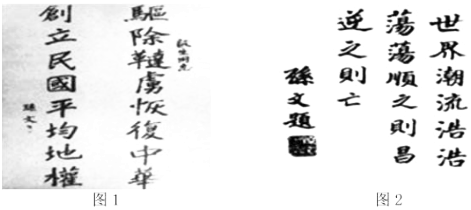 驅除韃虜恢復中華
創立民國平均地權
孫文
图1
世界潮流浩浩
蕩蕩順之則昌
逆之則亡
孫文題
图2